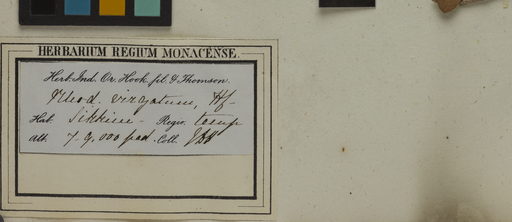 HERBARIUM REGIUM MONACENSE.
Herb. Ind. Or. Hook. fil. & Thomson.
Rhod. virgatum, Hf-
Hab. Sikkim - Regio. temp
Alt. 7-9,000 ped. Coll. JDH